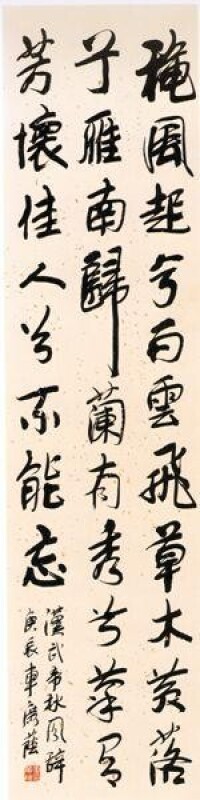 秌風起兮白雲飛草木黃落
兮雁南歸蘭有秀兮菊有
芳懷佳人兮不能忘
漢武帝秋風辭
庚辰車